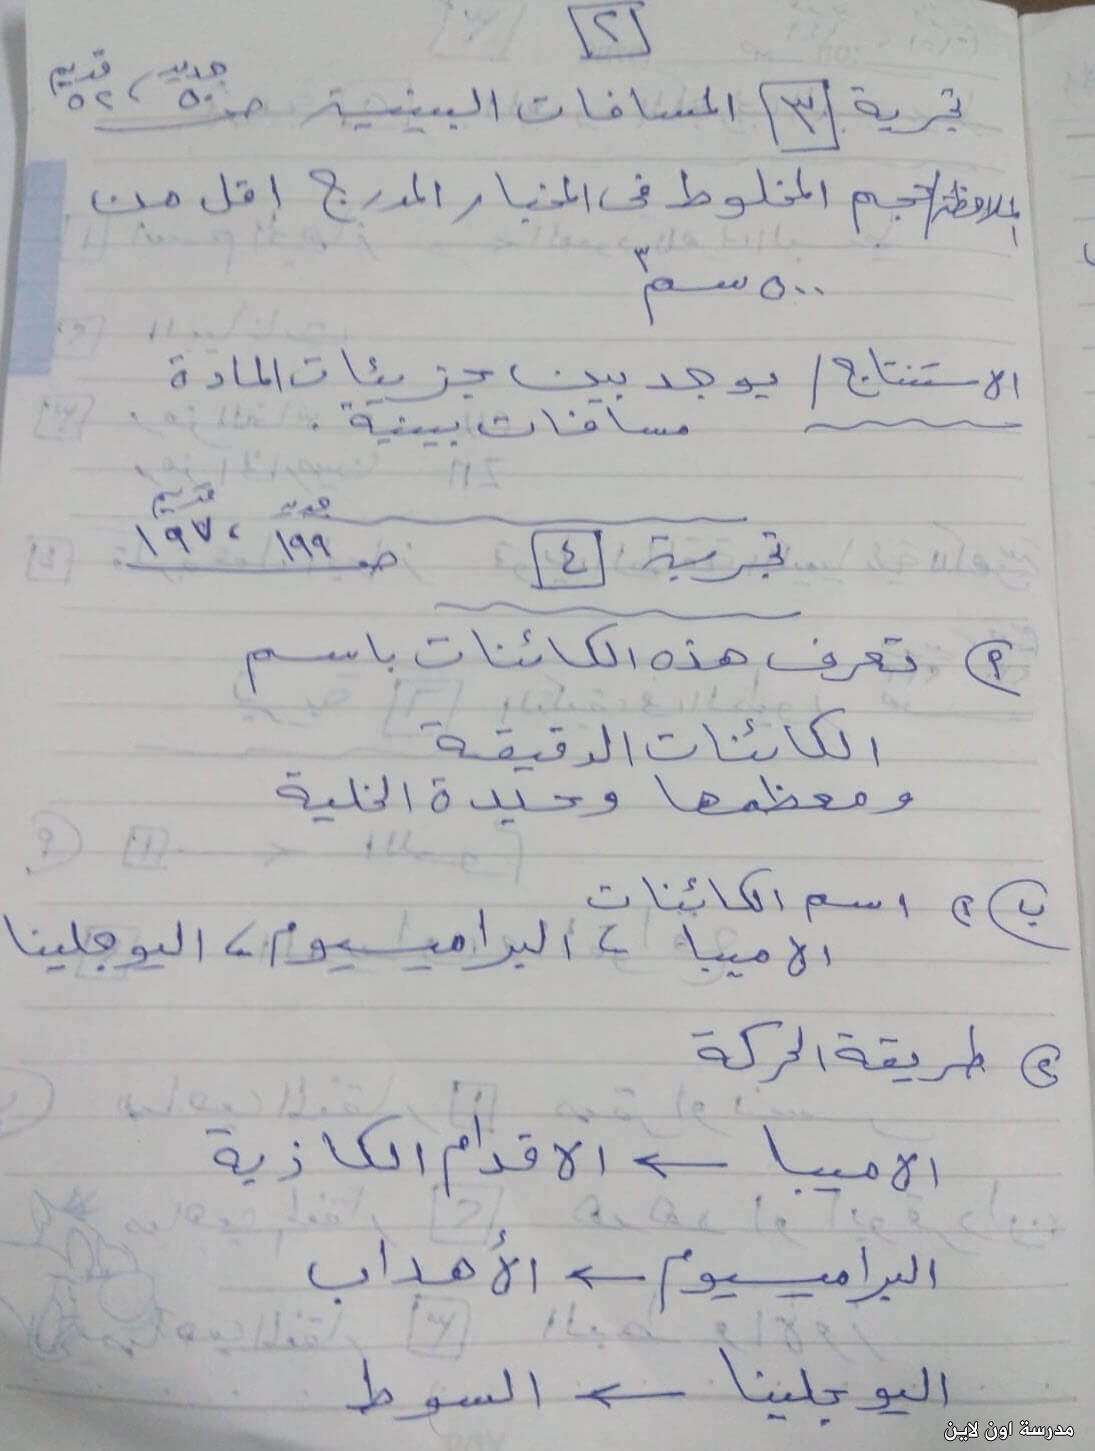 ٢
جديد ، قديم
تجربة ٣ المسافات البينية صـ ٥٠ ، ٥٢
الملاحظة / حجم المخلوط فى المخبار المدرج اقل من
٥٠٠ سم٣
الاستنتاج / يوجد بين جزيئات المادة
مسافات بينية .
جديد قديم
تجربة ٤ صـ ١٩٩ ، ١٩٧
أ تعرف هذه الكائنات باسم
الكائنات الدقيقة
ومعظمها وحيدة الخلية
ب ١ اسم الكائنات
الاميبا ، البراميسيوم ، اليوجلينا
٢ طريقة الحركة
الاميبا ← الاقدام الكاذبة
البراميسيوم ← الأهداب
اليوجلينا ← السوط
مدرسة اون لاين